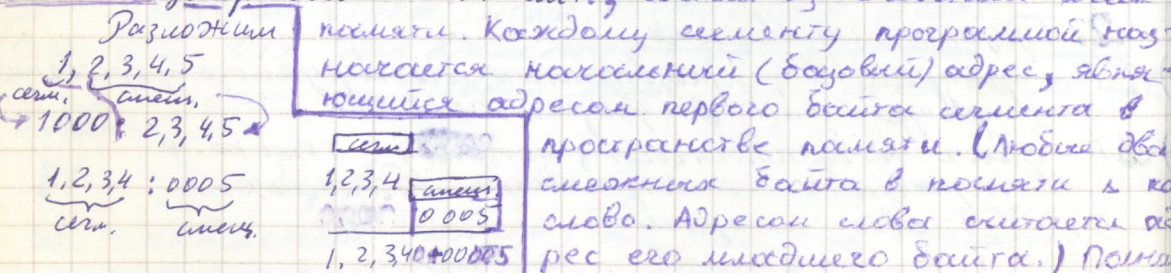 Разложим
1, 2, 3, 4, 5
сегм. смещ.
1000 : 2,3,4,5
1,2,3,4 : 0005
сегм. смещ.
сегм
1,2,3,4 смещ.
0005
1, 2, 3,40+00005
памяти. Каждому сегменту программой наз-
начается начальний (базовий) адрес, явля-
ющийся адресом первого байта сегмента в
пространстве памяти. (Любые два
смежных байта в памяти
слово. Адресом слова считается ад
рес его младшего байта.)